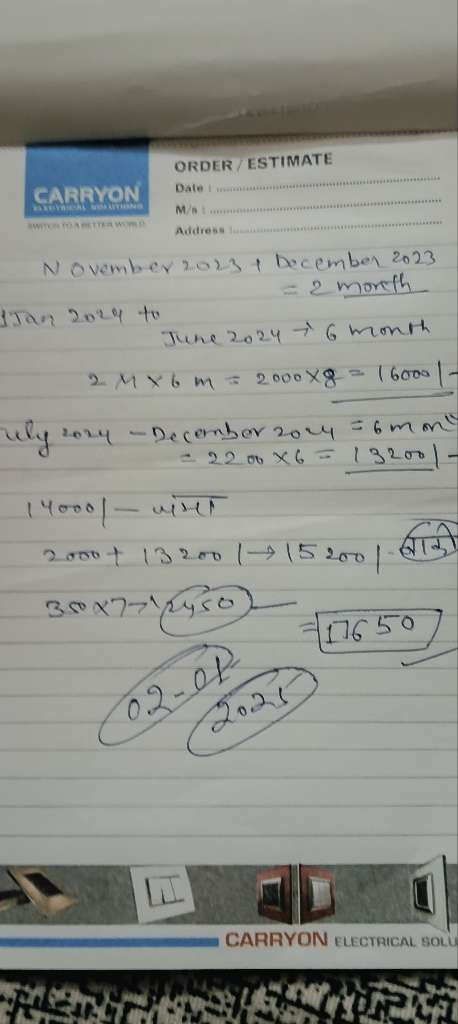 ORDER / ESTIMATE
CARRYON
ELECTRICAL SOLUTIONS
SWITCH TO A BETTER WORLD
Date :
M/s :
Address :
November 2023 + December 2023
= 2 month
1 Jan 2024 to
June 2024 → 6 month
2 M x 6 m = 2000 x 8 = 16000/-
July 2024 - December 2024 = 6 mon
= 2200 x 6 = 13200/-
14000/- जमा
2000 + 13200/ → 15200/- बाकी
350 x 7 → 2450
= 17650
02-01
2025
CARRYON ELECTRICAL SOLU